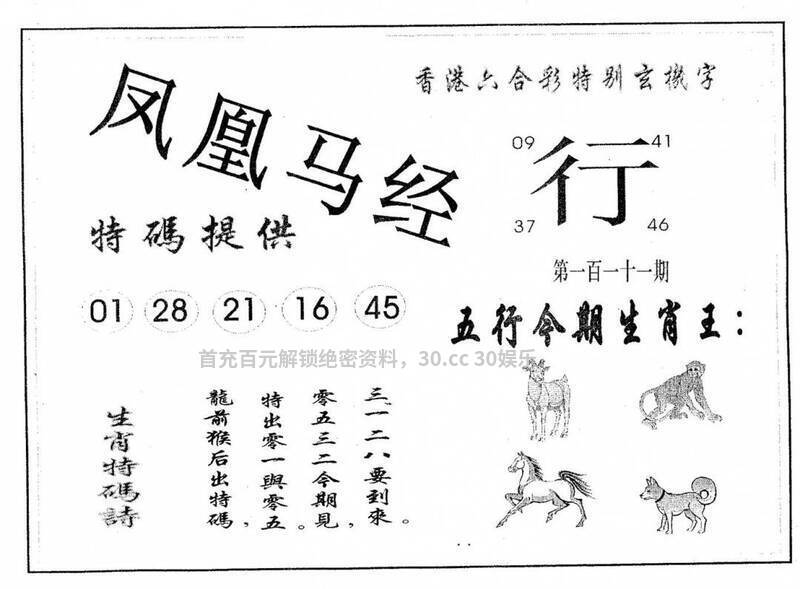 凤凰马经
香港六合彩特别玄機字
09 41
行
37 46
特碼提供
第一百一十一期
01 28 21 16 45
五行今期生肖王：
首充百元解锁绝密资料，30.cc 30娱乐
三一二八要到來。
零五三二今期見，
特出零一與零五。
龍前猴后出特碼，
生肖特碼詩